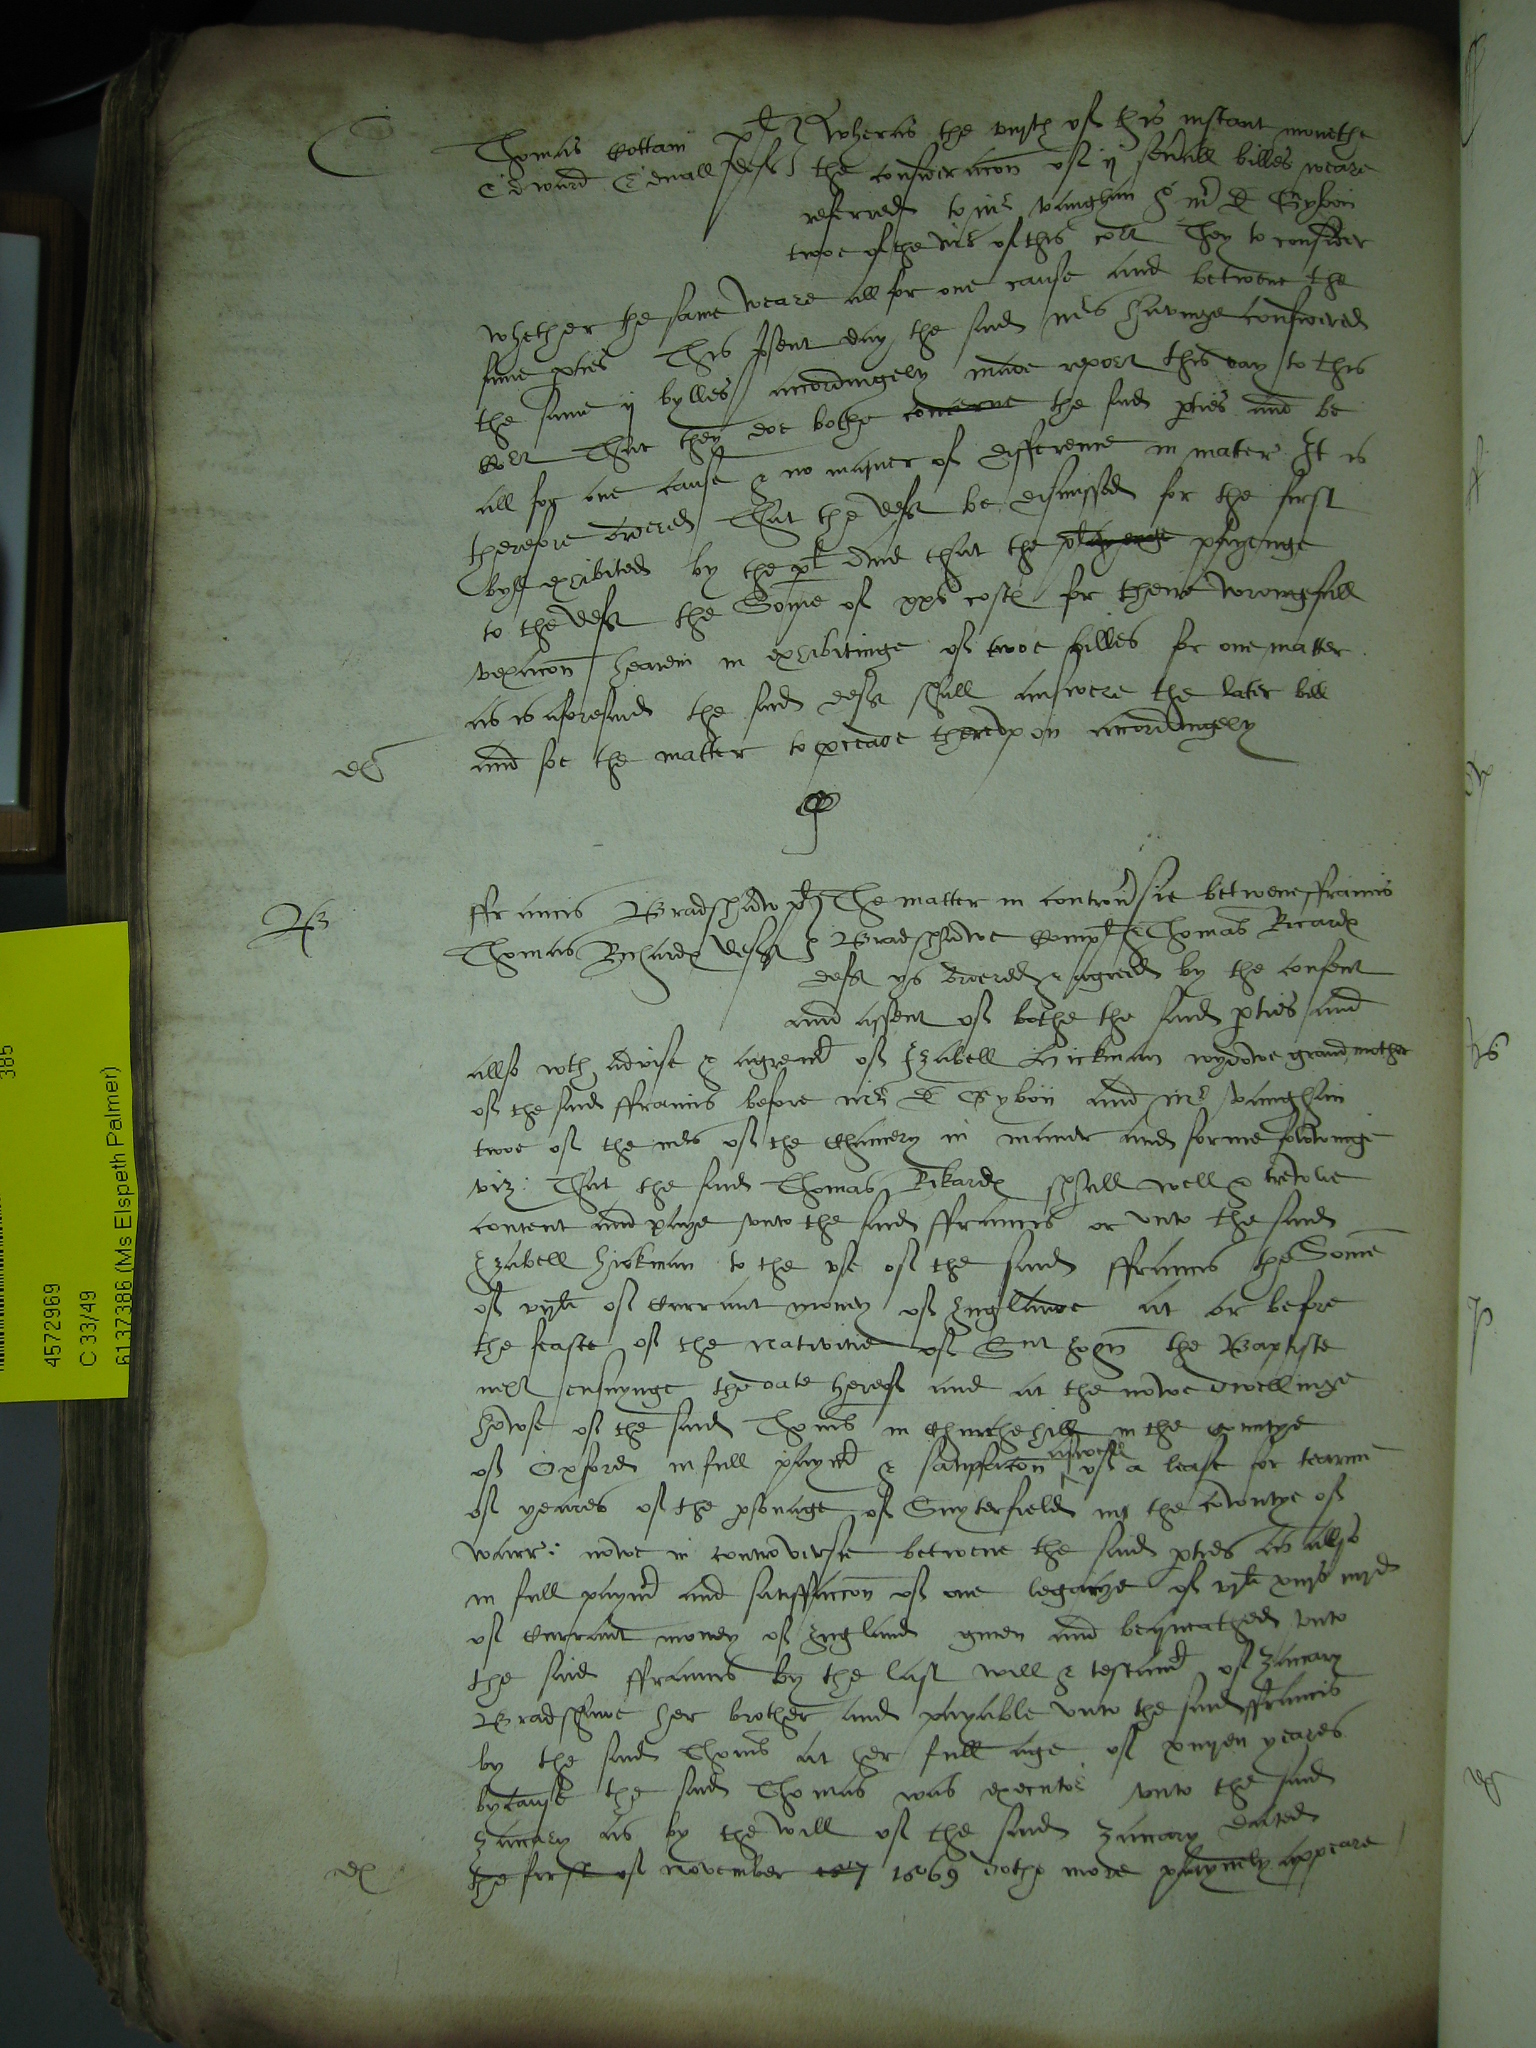 C Thomas Cottam plt Wheras the viijth of this instant monethe
Edward Ednall deft the consideracon of ij seūall billes weare
referred to mr vaughan & mr D Gybon
twoe of the mrs of this cort They to consider
whether the same weare all for one cause and betwene the
same pties This psent day the said mrs havinge considered
the same ij bylles accordingely made report this day to this
Cort That they doe bothe concerne the said pties and be
all for one cause & no maner of difference in mater It is
therefore ordered That the deft be dismissed for the first
byll exhibited by the plt And that the plt payenge
to the deft the Some of xxs costs for theire wrongefull
vexacon hearein in exhibitinge of twoe billes for one matter
as is aforesaid the said deft shall answere the later bill
and soe the matter to proceade therevpon accordingely
B ffrauncis Bradshaw plt The matter in controusie betwene ffrauncis
Thomas Richards deft Bradshawe Complt & Thomas Ricards
deft ys ordered & agreed by the consent
and assent of bothe the said pties and
allso wth advise & agremt of Izabell Hickman wydowe grandmother
of the said ffrauncis before mr D Gybon and mr Vaughan
twoe of the mrs of the Chauncery in maner and forme followinge
viz: That the said Thomas Rikards shall well & trewlie
content and paye vnto the said ffrauncis or vnto the said
Izabell Hickman to the vse of the said ffrauncis the Some
of of Currant money of England at or before
the feaste of the Nativitie of Snt John the Baptiste
next ensuynge the date hereof and at the nowe dwellinge
howse of the said Thoms in Churchehill in the Countye
of Oxford in full paymt & satisfacon aswell of a lease for tearme
of yeares of the psonage of Snyterfield in the Cowntye of
warr: nowe in controversie betwene the said pties as allso
in full paymt and satisffaccon of one legacye of vjli xiijs iiijd
of Currant money of England given and bequeathed vnto
the said ffrauncis by the last will & testamt of Zacary
Bradshawe her brother and payable vnto the said ffrauncis
by the said Thoms at her full age of yeares
bycause the said Thomas was executor vnto the said
Zacary as by the will of the said Zacary dated
the first of November 1569 dothe more playnely appeare
385
4572969
C 33/49
6137386 (Ms Elspeth Palmer)